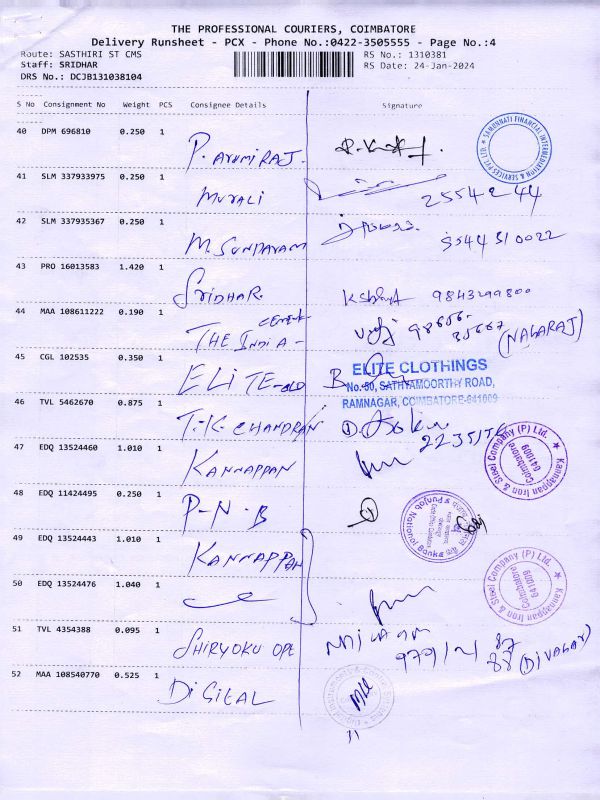 THE PROFESSIONAL COURIERS, COIMBATORE
Delivery Runsheet - PCX - Phone No.:0422-3505555 - Page No.:4
Route: SASTHIRI ST CMS
RS No.: 1310381
Staff: SRIDHAR
RS Date: 24-Jan-2024
DRS No.: DCJB131038104
S No Consignment No Weight PCS Consignee Details Signature
40 DPM 696810 0.250 1
P. ARUMIRAJ.
SAMUNNATI FINANCIAL INTERMEDIATION & SERVICES PVT. LTD.
41 SLM 337933975 0.250 1
MURALI
25542-44
42 SLM 337935367 0.250 1
M. SUNDARAM
9544310022
43 PRO 16013583 1.420 1
SRIDHAR.
9843299800
44 MAA 108611222 0.190 1
THE INDIA - CEMENT
98656-35667
(NAGARAJ)
45 CGL 102535 0.350 1
ELITE-
ELITE CLOTHINGS
No.-80, SATHYAMOORTHY ROAD,
RAMNAGAR, COIMBATORE-641009
46 TVL 5462670 0.875 1
T.K. CHANDRAN
47 EDQ 13524460 1.010 1
KANNAPPAN
Kannappan Iron & Steel Company (P) Ltd.
Coimbatore
641009
48 EDQ 11424495 0.250 1
P-N-B
Punjab National Bank
49 EDQ 13524443 1.010 1
KANNAPPAN
50 EDQ 13524476 1.040 1
Kannappan Iron & Steel Company (P) Ltd.
Coimbatore
641009
51 TVL 4354388 0.095 1
SHIRYOKU OPE
(DIVAGAR)
52 MAA 108540770 0.525 1
DIGITAL